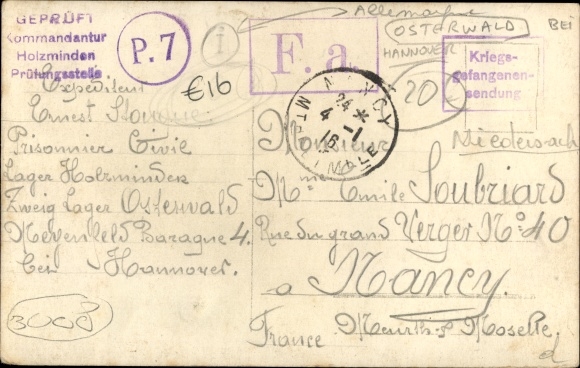 GEPRÜFT
Kommandantur
Holzminden
Prüfungsstelle
P. 7
I
Allemagne
OSTERWALD
BEI
HANNOVER
F. a
Kriegs-
gefangenen-
sendung
€16
20
NANCY
24 *
4 - 1
16
Niedersach
Expediteur
Ernest
Prisonnier Civil
Lager Holzminden
Zweig Lager Osterwald
Baraque 4.
bei Hannover.
3000
Monsieur
Mme Emile Soubriard
Rue du grand Verger No 40
a Nancy.
France Meurthe Moselle.
d